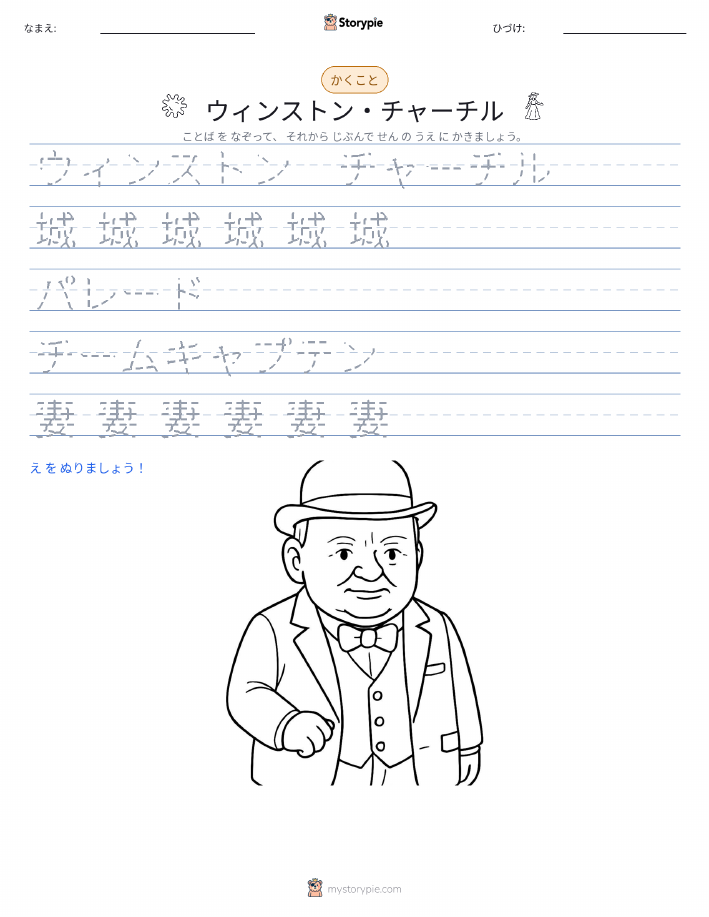 なまえ:
Storypie
ひづけ:
かくこと
ウィンストン・チャーチル
ことば を なぞって、 それから じぶんで せん の うえ に かきましょう。
ウィンストン チャーチル
城 城 城 城 城 城
パレード
チームキャプテン
妻 妻 妻 妻 妻 妻
え を ぬりましょう！
mystorypie.com